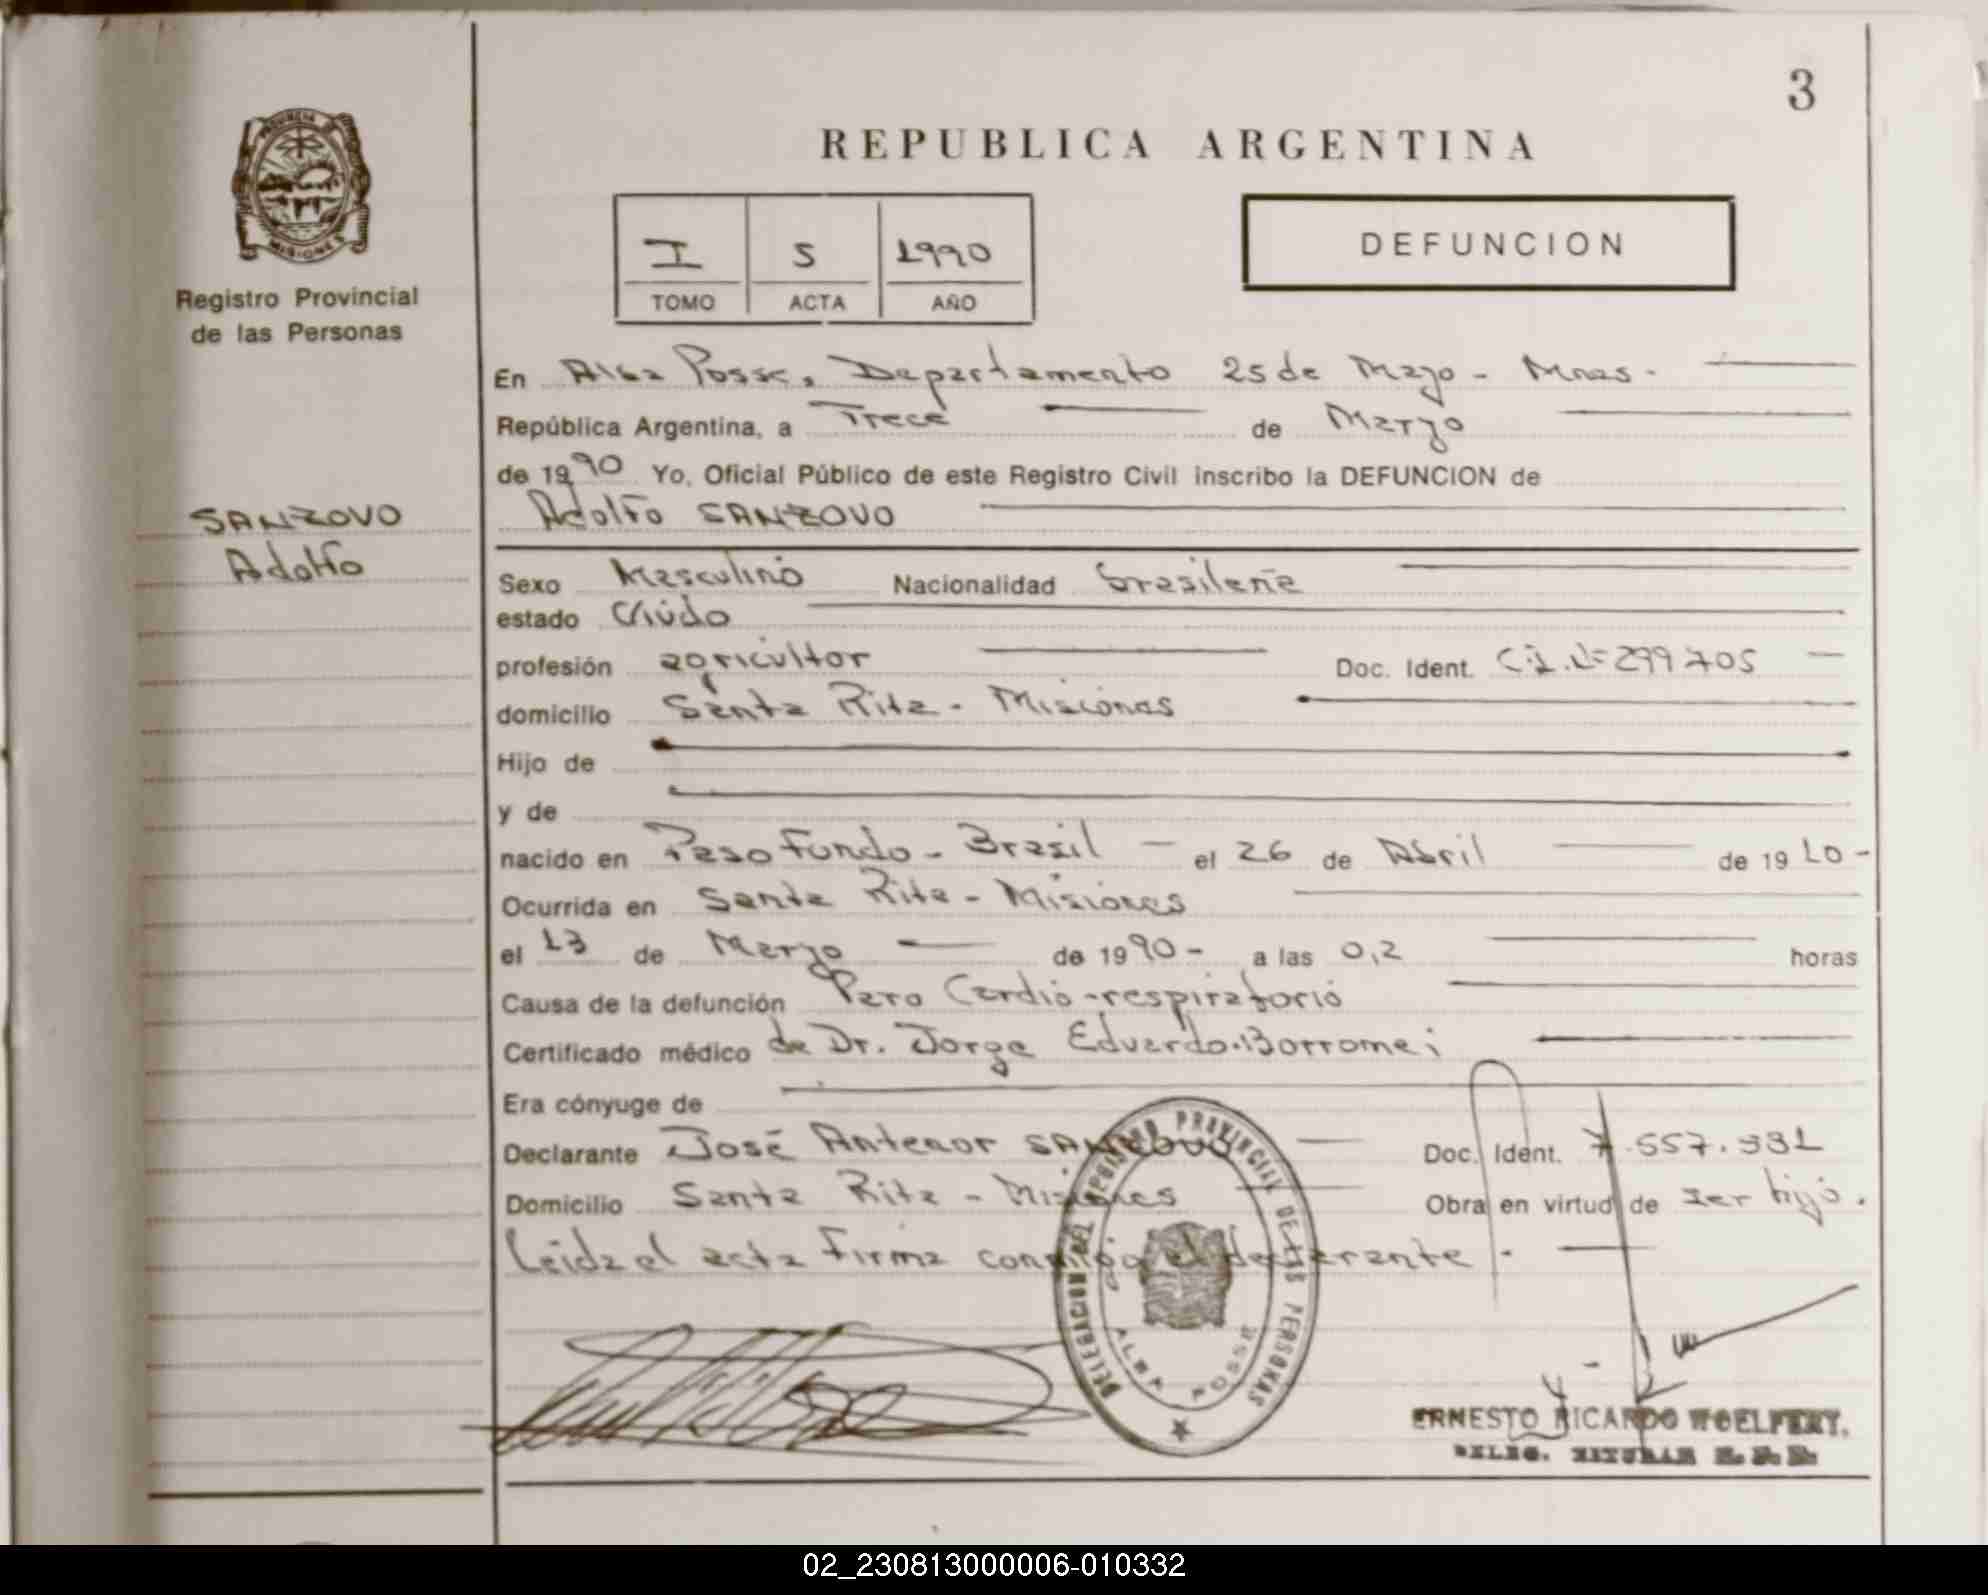 3
REPUBLICA ARGENTINA
PROVINCIA DE
MISIONES
Registro Provincial
de las Personas
I S 1990
TOMO ACTA AÑO
DEFUNCION
En Alba Posse, Departamento 25 de Mayo - Mnes.
República Argentina, a Trece de Marzo
de 1990 Yo, Oficial Público de este Registro Civil inscribo la DEFUNCION de
Adolfo SANZOVO
SANZOVO
Adolfo
Sexo Masculino Nacionalidad brasileña
estado Viúdo
profesión agricultor Doc. Ident. C.I. Nº 299705
domicilio Santa Rita - Misiones
Hijo de
y de
nacido en Paso Fundo - Brasil - el 26 de Abril de 1910 -
Ocurrida en Santa Rita - Misiones
el 13 de Marzo de 1990 - a las 0,2 horas
Causa de la defunción Paro Cardio-respiratorio
Certificado médico de Dr. Jorge Eduardo Borromei
Era cónyuge de
Declarante José Antenor SANZOVO Doc. Ident. 7.557.331
Domicilio Santa Rita - Misiones Obra en virtud de ser hijo.
Leída el acta firma conmigo el declarante.
DELEGACION DEL REGISTRO PROVINCIAL DE LAS PERSONAS
ALBA POSSE
ERNESTO RICARDO WOELFERT,
DELEG. TITULAR R.P.P.
02_230813000006-010332